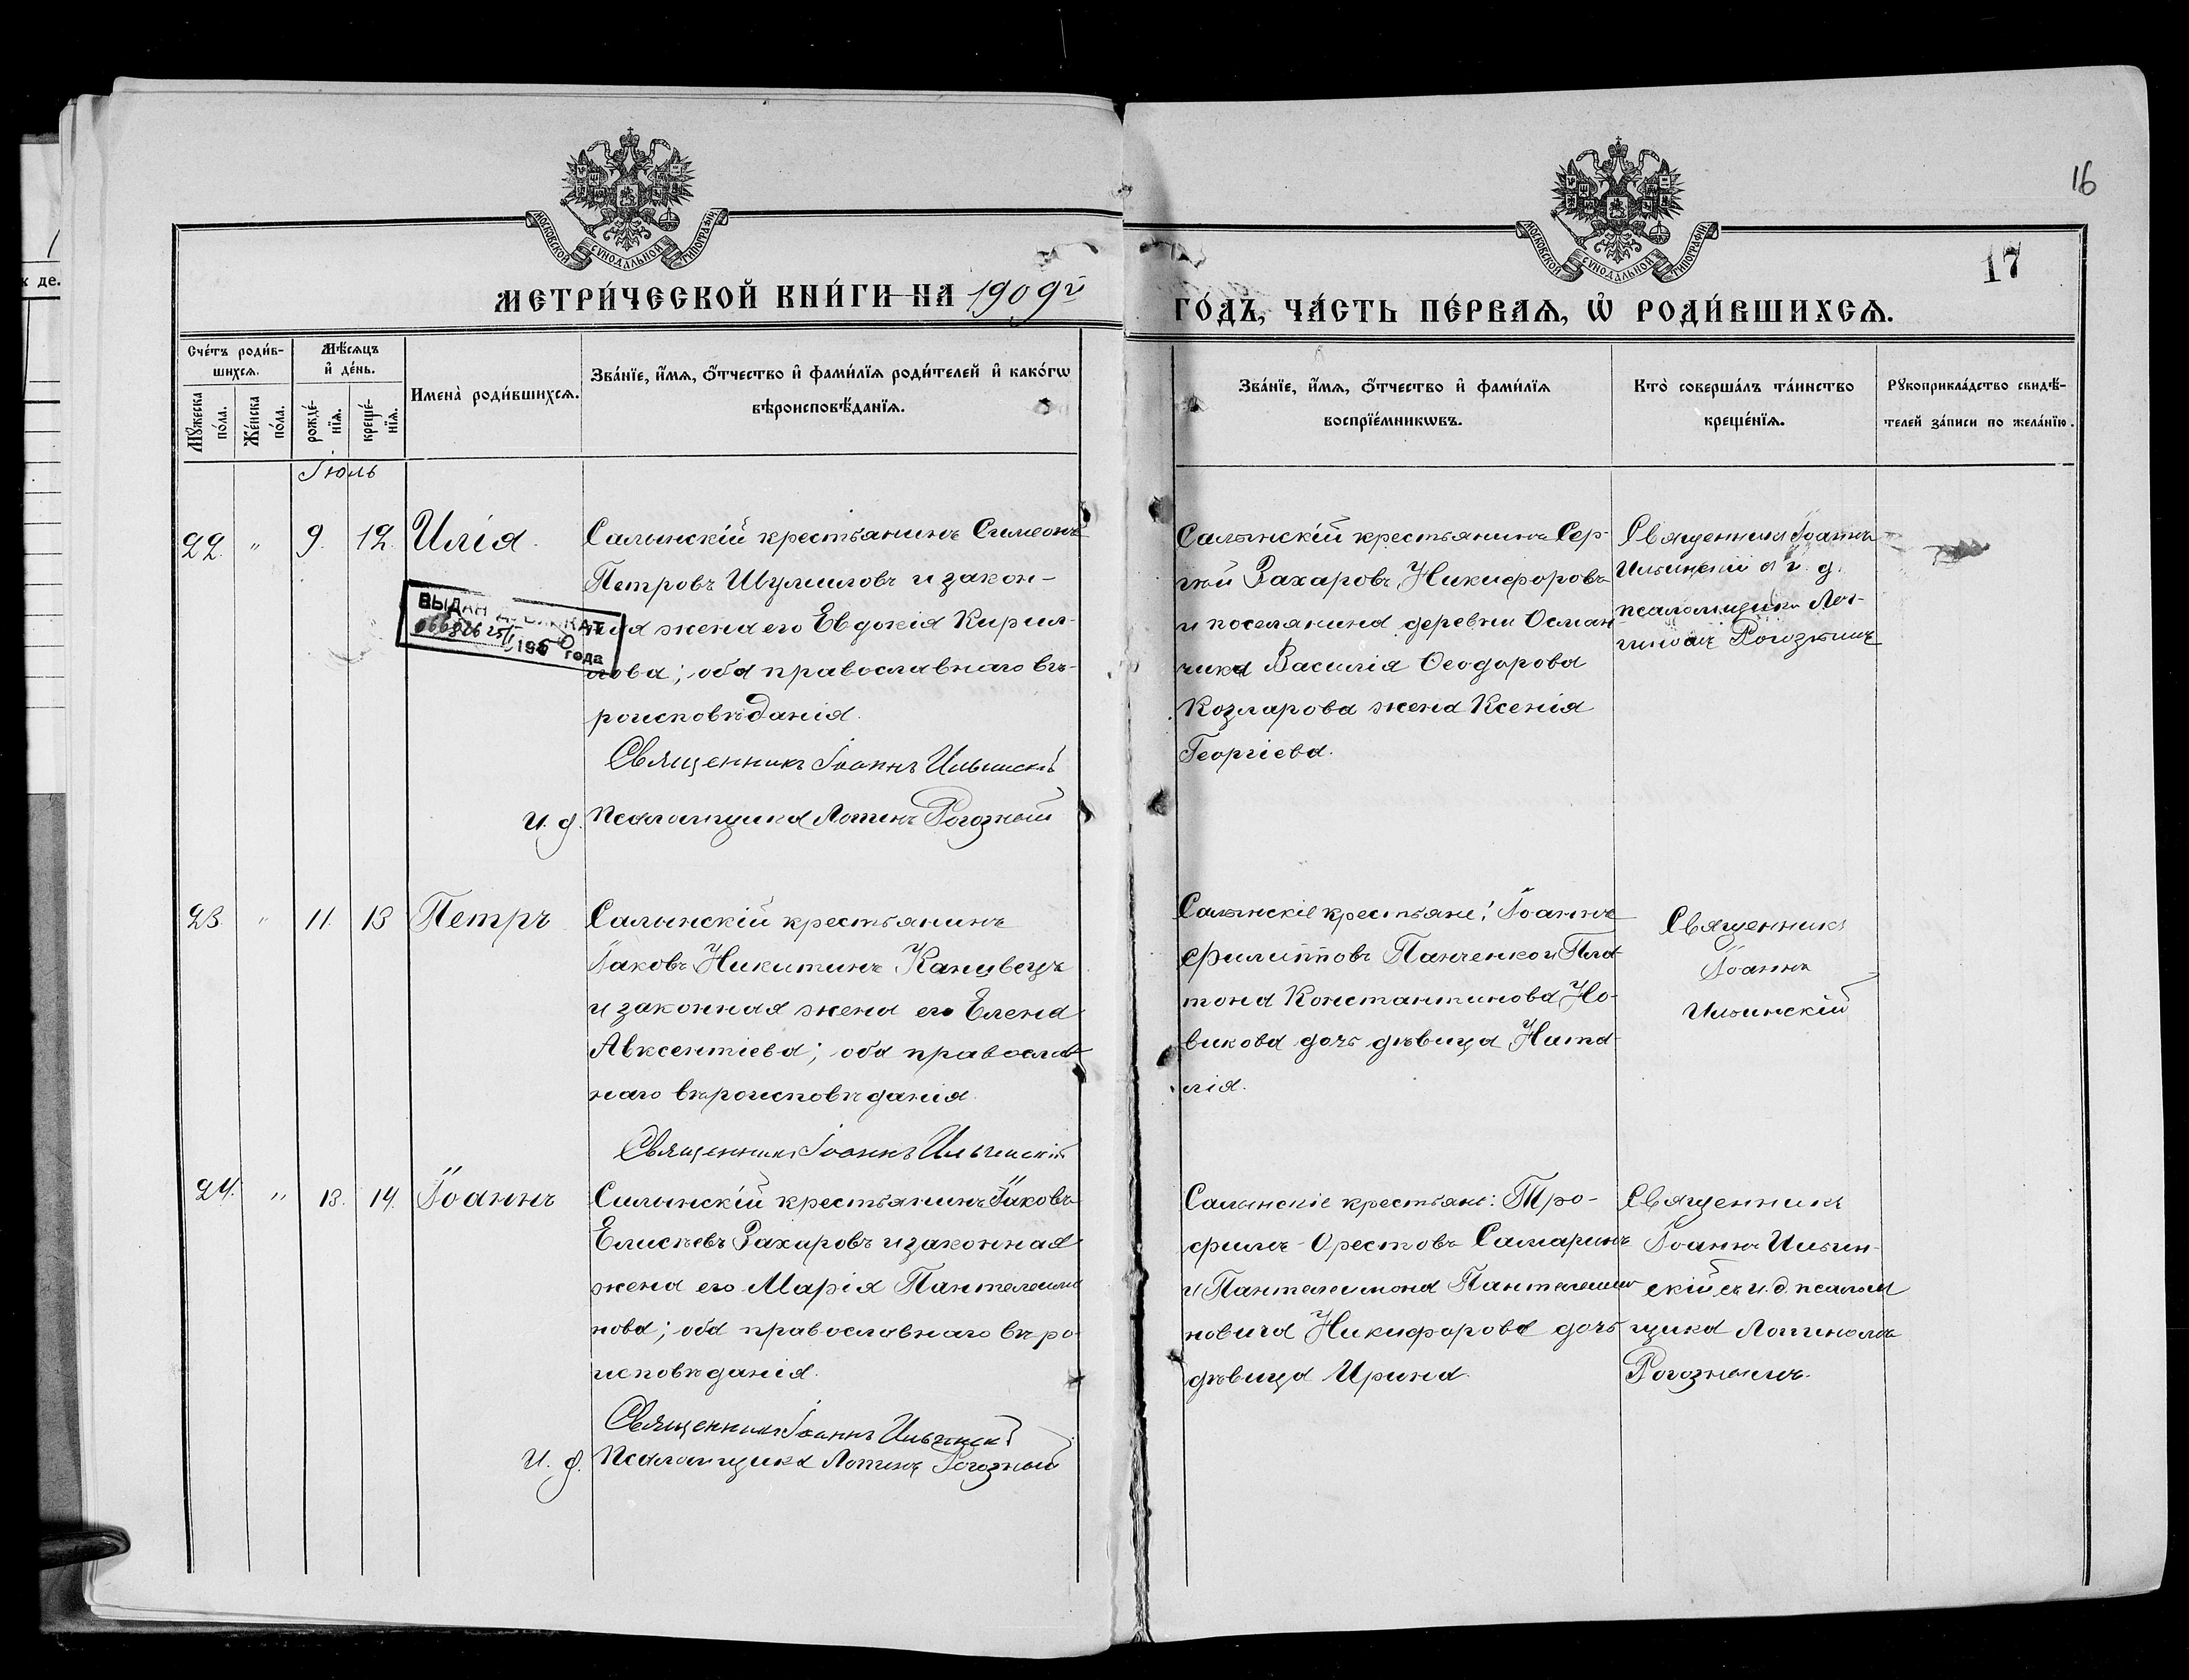 16
17
МОСКОВСКОЙ СѴНОДАЛЬНОЙ ТИПОГРАФІИ
МОСКОВСКОЙ СѴНОДАЛЬНОЙ ТИПОГРАФІИ
МЕТРИ́ЧЕСКОЙ КНИ́ГИ НА 1909й
ГО́ДЪ, ЧА́СТЬ ПЕ́РВАѦ, Ѡ҆ РОДИ́ВШИХСѦ.
Сче́тъ роди́в-
шихсѧ.
Мѣ́сѧцъ
и҆ де́нь.
Мꙋ́жеска
по́ла.
Же́нска
по́ла.
рожде́-
нїѧ.
креще́-
нїѧ.
Имена̀ роди́вшихсѧ.
Зва́нїе, и҆́мѧ, ѻ҆́тчество и҆ фами́лїѧ роди́телей и҆ како́гѡ
вѣроисповѣ́данїѧ.
Зва́нїе, и҆́мѧ, ѻ҆́тчество и҆ фами́лїѧ
воспрїе́мникѡвъ.
Кто̀ соверша́лъ та́инство
креще́нїѧ.
Рꙋкоприкла́дство свидѣ́-
телей за́писи по жела́нїю.
Іюль
22 " 9. 12. Илія.
Салынскій крестьянинъ Симеонъ
Петровъ Шумиловъ и закон-
ная жена его Евдокія Кирил-
лова; оба православнаго вѣ-
роисповѣданія.
Священникъ Іоаннъ Ильинскій
И. д. Псаломщика Логинъ Рогозный
ВЫДАН ДУБЛИКАТ
066826 25/I 1950 года
Салынскій крестьянинъ Сер-
гѣй Захаровъ Никифоровъ
и поселянина деревни Осман
чика Василія Ѳеодорова
Козларова жена Ксенія
Георгіева.
Священникъ Іоаннъ
Ильинскій съ и. д.
псаломщика Лог-
гиномъ Рогознымъ
23. " 11. 13 Петръ
Салынскій крестьянинъ
Іаковъ Никитинъ Канивецъ
и законная жена его Елена
Авксентіева; оба правосла-
наго вѣроисповѣданія.
Священникъ Іоаннъ Ильинскій
Салынскіе крестьяне: Іоаннъ
Филипповъ Панченко и Пла-
тона Константинова Но-
викова дочь дѣвица Ната-
лія.
Священникъ
Іоаннъ
Ильинскій
24. " 13. 14. Іоаннъ
Салынскій крестьянинъ Іаковъ
Елисѣевъ Захаровъ и законная
жена его Марія Пантелеимо
нова; оба православнаго вѣро-
исповѣданія.
Священникъ Іоаннъ Ильинскій
И. д. Псаломщика Логинъ Рогозный
Салынскіе крестьяне: Тро-
фимъ Орестовъ Самаринъ
и Пантелеимона Пантелеимо
новича Никифорова дочь
дѣвица Ирина.
Священникъ
Іоаннъ Ильин-
скій съ и. д. псалом
щика Логиномъ
Рогознымъ.